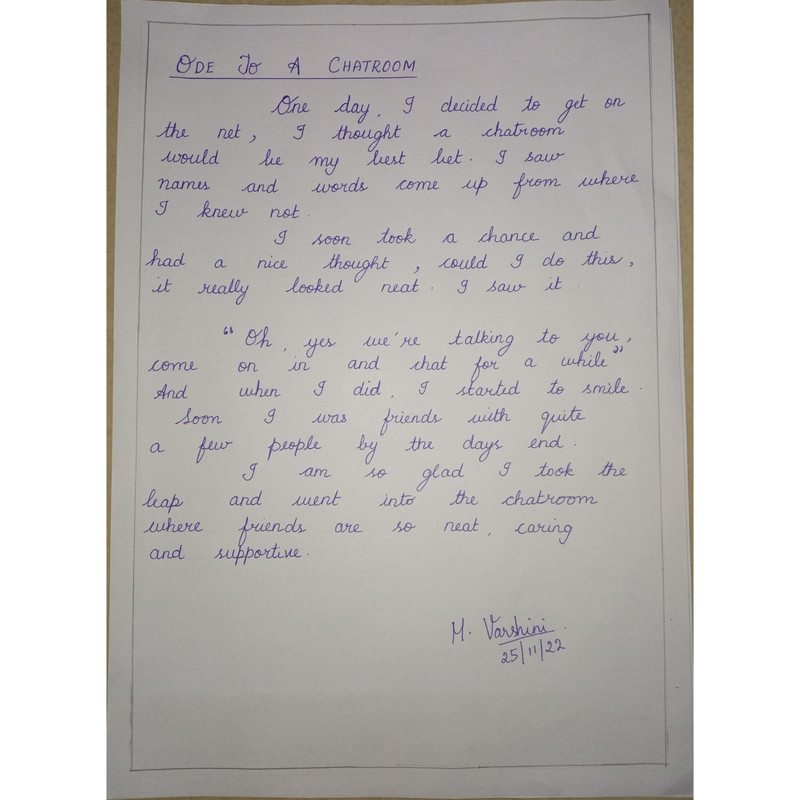 ODE TO A CHATROOM
One day, I decided to get on
the net, I thought a chatroom
would be my best bet. I saw
names and words come up from where
I knew not.
I soon took a chance and
had a nice thought, could I do this,
it really looked neat. I saw it
"Oh, yes we're talking to you,
come on in and chat for a while"
And when I did, I started to smile.
Soon I was friends with quite
a few people by the days end.
I am so glad I took the
leap and went into the chatroom
where friends are so neat, caring
and supportive.
M. Varshini.
25/11/22